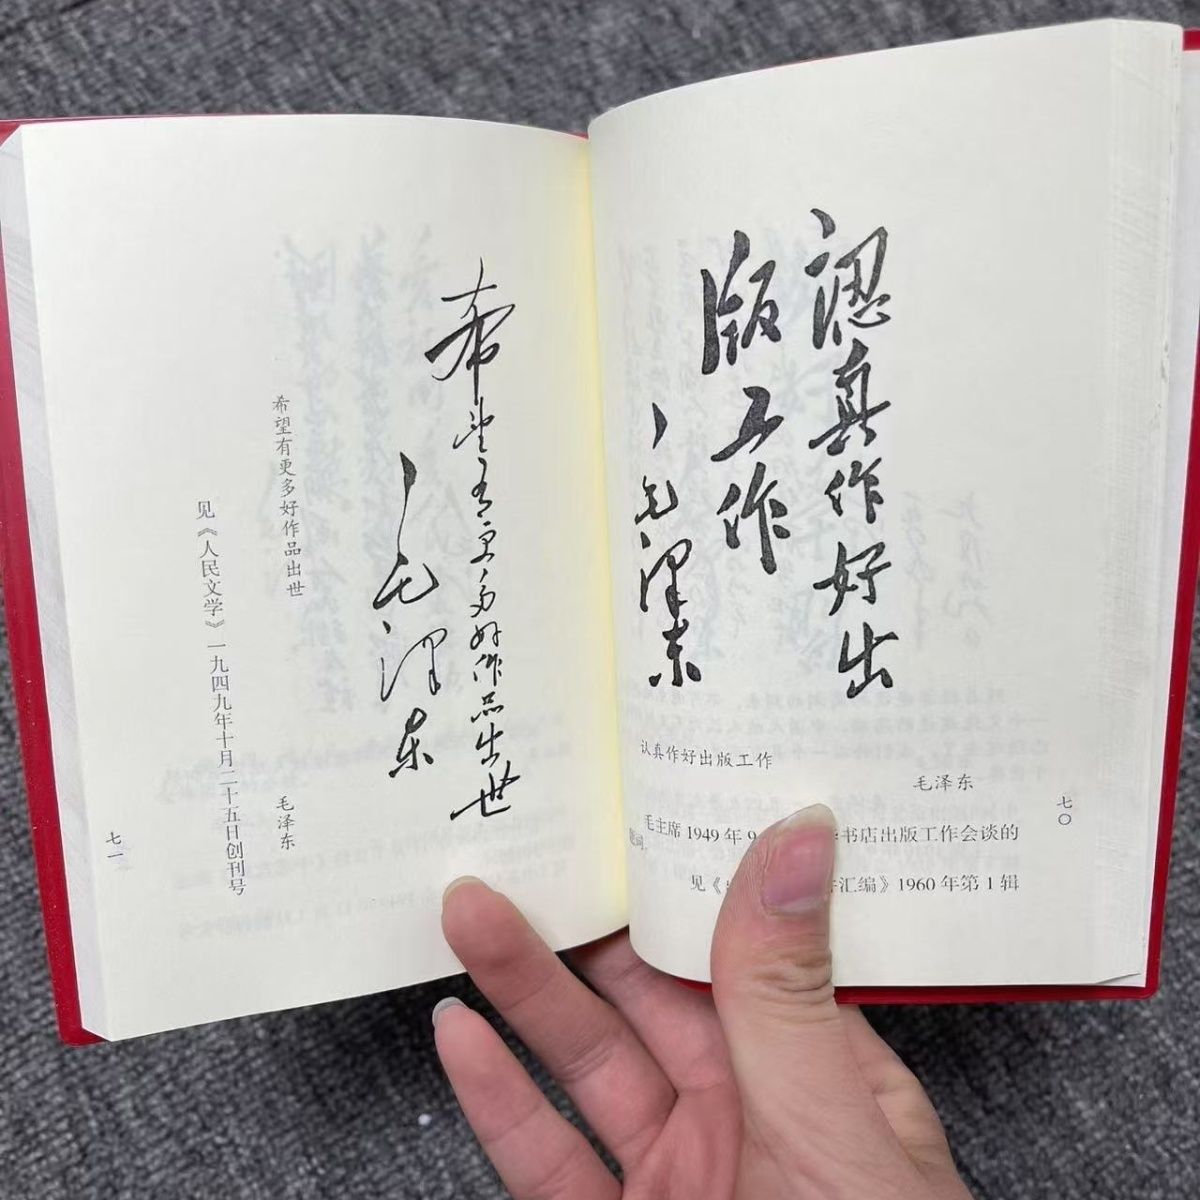 認真作好出
版工作
毛澤东
认真作好出版工作
毛泽东
毛主席1949年9 书店出版工作会谈的
题词
见《 汇编》1960年第1辑
七〇
希望有更多好作品出世
毛澤东
希望有更多好作品出世
毛泽东
见《人民文学》一九四九年十月二十五日创刊号
七一